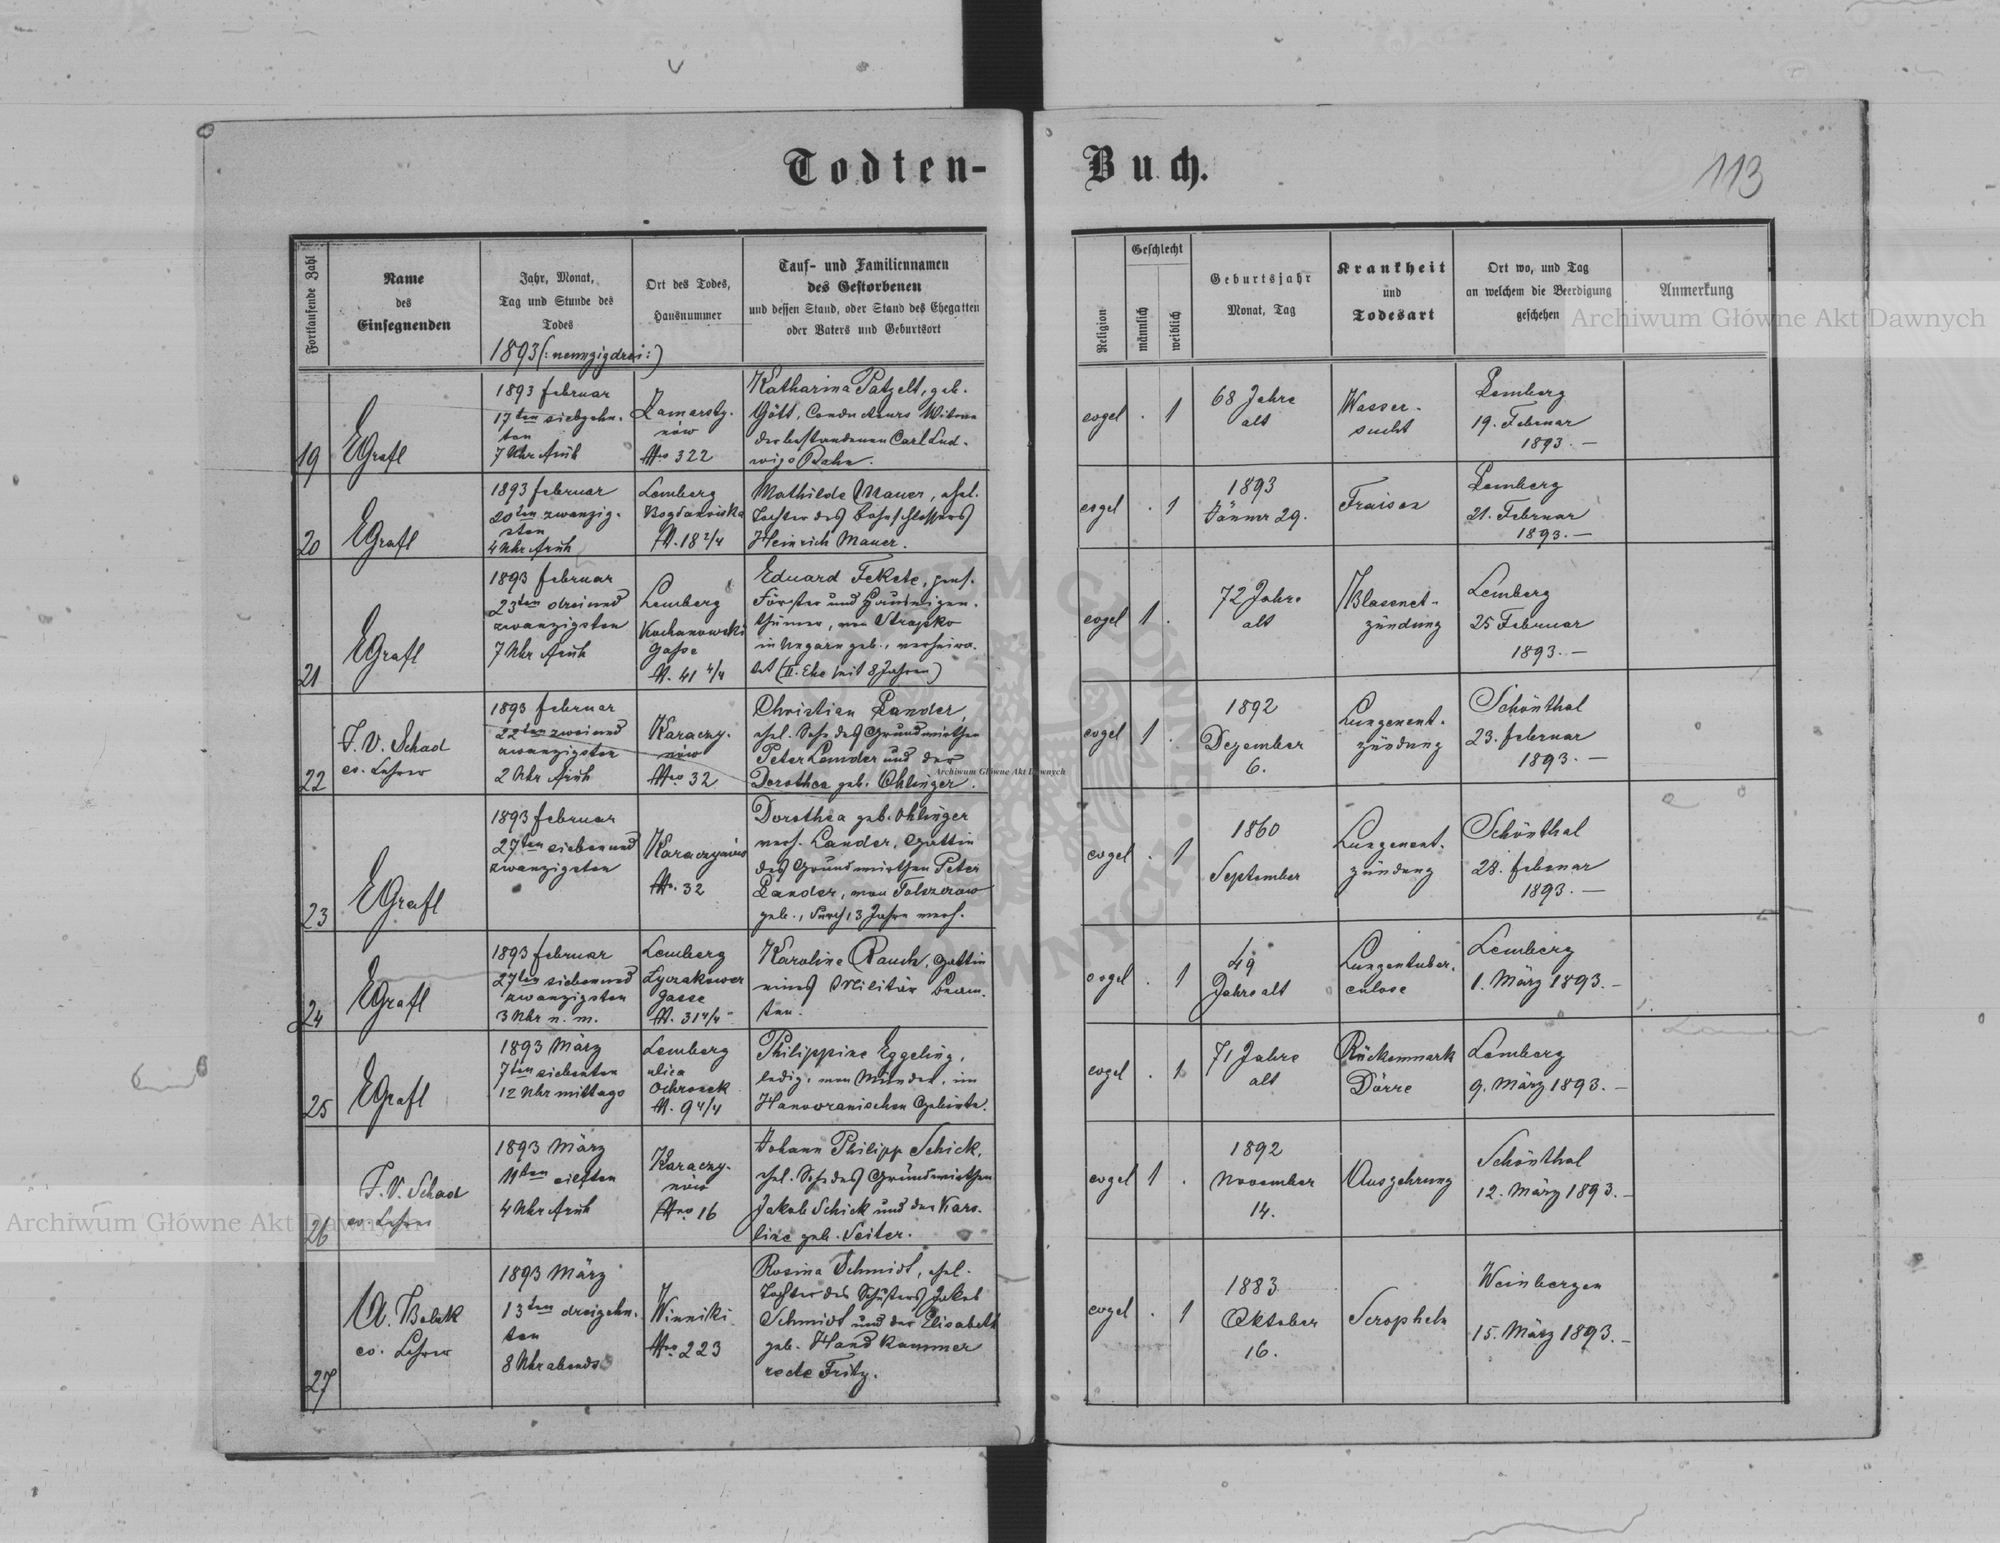 Todten-Buch.
113
Fortlaufende Zahl
Name
des
Einsegnenden
Jahr, Monat,
Tag und Stunde des
Todes
Ort des Todes,
Hausnummer
Tauf- und Familiennamen
des Gestorbenen
und dessen Stand, oder Stand des Ehegatten
oder Vaters und Geburtsort
Religion
Geschlecht
männlich
weiblich
Geburtsjahr
Monat, Tag
Krankheit
und
Todesart
Ort wo, und Tag
an welchem die Beerdigung
geschehen
Anmerkung
1893 (: neunzigdrei :)
19
EGrafl
1893 Februar
17ten siebzehn-
ten
7 Uhr früh
Zamarsty-
nów
Nro 322
Katharina Patzelt, geb.
Gött, Conducteurs Witwe
der bestandenen Carl Lud-
wigs Bahn.
evgel
. 1
68 Jahre
alt
Wasser-
sucht
Lemberg
19. Februar
1893. —
20
EGrafl
1893 Februar
20ten zwanzig-
sten
4 Uhr früh
Lemberg
Bogdanówka
N. 18 2/4
Mathilde Mauer, ehel.
Tochter des Bahnschlossers
Heinrich Mauer.
evgel
. 1
1893
Jänner 29.
Fraisen
Lemberg
21. Februar
1893. —
21
EGrafl
1893 Februar
23ten dreiund
zwanzigsten
7 Uhr früh
Lemberg
Kochanowski
Gasse
N. 41 4/4
Eduard Fekete, pens.
Förster und Hauseigen-
thümer, von Stropko
in Ungarn geb., verheira-
tet (II. Ehe seit 8 Jahren)
evgel
1 .
72 Jahre
alt
Blasenent-
zündung
Lemberg
25 Februar
1893. —
22
F. V. Schad
ev. Lehrer
1893 Februar
22ten zweiund
zwanzigsten
2 Uhr früh
Karaczy-
nów
Nro 32
Christian Lander,
ehel. Sohn des Grundwirthen
Peter Lander und der
Dorothea geb. Ohlinger.
evgel
1 .
1892
Dezember
6.
Lungenent-
zündung
Schönthal
23. Februar
1893. —
23
EGrafl
1893 Februar
27ten siebenund
zwanzigsten
Karaczynów
Nr. 32
Dorothea geb. Ohlinger
verh. Lander, Gattin
des Grundwirthen Peter
Lander, von
geb., durch 13 Jahre verh.
evgel
. 1
1860
September
Lungenent-
zündung
Schönthal
28. Februar
1893. —
24
EGrafl
1893 Februar
27ten siebenund
zwanzigsten
3 Uhr n. m.
Lemberg
Lyczakower
Gasse
N. 31 4/4
Karoline Rauch, Gattin
eines Militär Beam-
ten.
evgel
. 1
49
Jahre alt
Lungentuber-
culose
Lemberg
1. März 1893. —
25
EGrafl
1893 März
7ten siebenten
12 Uhr mittags
Lemberg
ulica
Ochronek
N. 9 4/4
Philippine Eggeling,
ledig, von Münden, im
Hannoveranischen Gebiete.
evgel
. 1
71 Jahre
alt
Rückenmark
Dörre
Lemberg
9. März 1893. —
26
F. V. Schad
ev. Lehrer
1893 März
11ten eilften
4 Uhr früh
Karaczy-
nów
Nro 16
Johann Philipp Schick,
ehel. Sohn des Grundwirthen
Jakob Schick und der Karo-
line geb. Seiter.
evgel
1 .
1892
November
14.
Auszehrung
Schönthal
12. März 1893. —
27
A. Bolek
ev. Lehrer
1893 März
13ten dreizehn-
ten
8 Uhr abends
Winniki
Nro 223
Rosina Schmidt, ehel.
Tochter des Schusters Jakob
Schmidt und der Elisabeth
geb. Handkammer
recte Fritz.
evgel
. 1
1883
Oktober
16.
Scropheln
Weinbergen
15. März 1893. —
Archiwum Główne Akt Dawnych
Archiwum Główne Akt Dawnych
Archiwum Główne Akt Dawnych